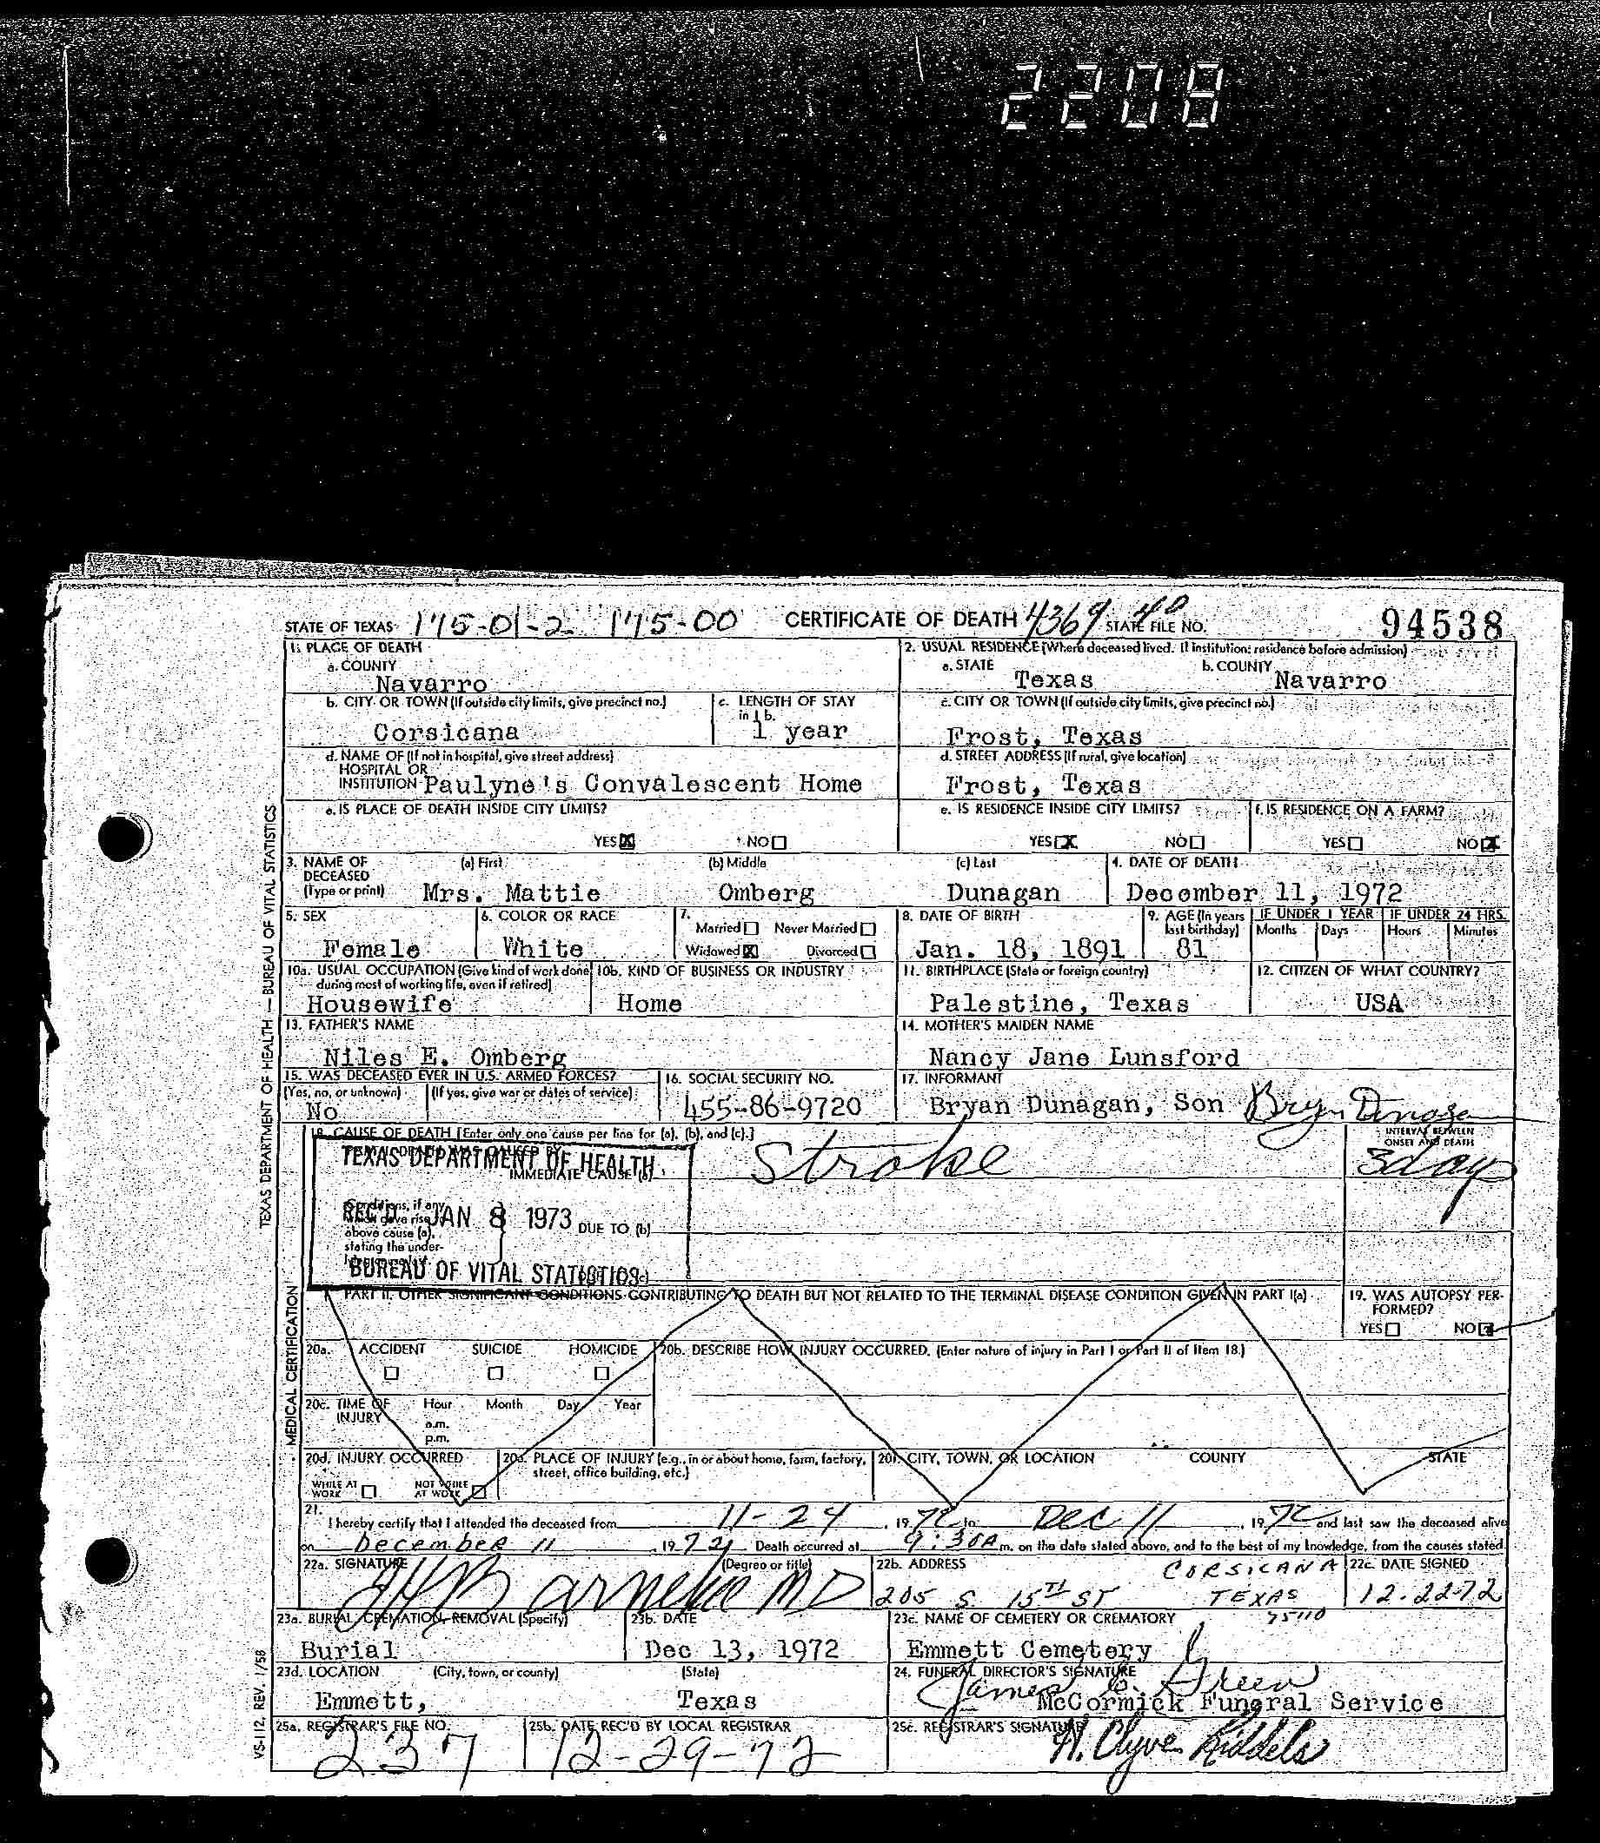 2208
STATE OF TEXAS 175-01-2 175-00 CERTIFICATE OF DEATH 4369 40 STATE FILE NO. 94538
1. PLACE OF DEATH
a. COUNTY
Navarro
2. USUAL RESIDENCE (Where deceased lived. If institution: residence before admission)
a. STATE b. COUNTY
Texas Navarro
b. CITY OR TOWN (If outside city limits, give precinct no.)
Corsicana
c. LENGTH OF STAY
in 1 b.
1 year
c. CITY OR TOWN (If outside city limits, give precinct no.)
Frost, Texas
d. NAME OF (If not in hospital, give street address)
HOSPITAL OR
INSTITUTION Paulyne's Convalescent Home
d. STREET ADDRESS (If rural, give location)
Frost, Texas
e. IS PLACE OF DEATH INSIDE CITY LIMITS?
YES X NO
e. IS RESIDENCE INSIDE CITY LIMITS?
YES X NO
f. IS RESIDENCE ON A FARM?
YES NO X
3. NAME OF DECEASED (Type or print)
(a) First (b) Middle (c) Last
Mrs. Mattie Omberg Dunagan
4. DATE OF DEATH
December 11, 1972
5. SEX
Female
6. COLOR OR RACE
White
7.
Married Never Married
Widowed X Divorced
8. DATE OF BIRTH
Jan. 18, 1891
9. AGE (In years last birthday)
81
IF UNDER 1 YEAR IF UNDER 24 HRS.
Months Days Hours Minutes
10a. USUAL OCCUPATION (Give kind of work done during most of working life, even if retired)
Housewife
10b. KIND OF BUSINESS OR INDUSTRY
Home
11. BIRTHPLACE (State or foreign country)
Palestine, Texas
12. CITIZEN OF WHAT COUNTRY?
USA
13. FATHER'S NAME
Niles E. Omberg
14. MOTHER'S MAIDEN NAME
Nancy Jane Lunsford
15. WAS DECEASED EVER IN U.S. ARMED FORCES?
(Yes, no, or unknown) (If yes, give war or dates of service)
No
16. SOCIAL SECURITY NO.
455-86-9720
17. INFORMANT
Bryan Dunagan, Son Bryan Dunagan
18. CAUSE OF DEATH [Enter only one cause per line for (a), (b), and (c).]
INTERVAL BETWEEN
ONSET AND DEATH
TEXAS DEPARTMENT OF HEALTH
IMMEDIATE CAUSE (a) Stroke 3 days
Conditions, if any
which gave rise
above cause (a),
stating the under-
REC'D JAN 8 1973
DUE TO (b)
BUREAU OF VITAL STATISTICS
PART II. OTHER SIGNIFICANT CONDITIONS CONTRIBUTING TO DEATH BUT NOT RELATED TO THE TERMINAL DISEASE CONDITION GIVEN IN PART I(a)
19. WAS AUTOPSY PER-
FORMED?
YES NO
20a. ACCIDENT SUICIDE HOMICIDE
20b. DESCRIBE HOW INJURY OCCURRED. (Enter nature of injury in Part I or Part II of Item 18.)
20c. TIME OF INJURY Hour Month Day Year
a.m.
p.m.
20d. INJURY OCCURRED
WHILE AT WORK NOT WHILE AT WORK
20e. PLACE OF INJURY (e.g., in or about home, farm, factory,
street, office building, etc.)
20f. CITY, TOWN, OR LOCATION COUNTY STATE
21.
I hereby certify that I attended the deceased from 11-24, 1972 to Dec 11, 1972 and last saw the deceased alive
on December 11 1972. Death occurred at 9:30A m. on the date stated above, and to the best of my knowledge, from the causes stated.
22a. SIGNATURE (Degree or title)
MD
22b. ADDRESS
205 S 15TH ST CORSICANA TEXAS 75110
22c. DATE SIGNED
12-22-72
23a. BURIAL, CREMATION, REMOVAL (Specify)
Burial
23b. DATE
Dec 13, 1972
23c. NAME OF CEMETERY OR CREMATORY
Emmett Cemetery
23d. LOCATION (City, town, or county) (State)
Emmett, Texas
24. FUNERAL DIRECTOR'S SIGNATURE
James C. Green
McCormick Funeral Service
25a. REGISTRAR'S FILE NO.
237
25b. DATE REC'D BY LOCAL REGISTRAR
12-29-72
25c. REGISTRAR'S SIGNATURE
H. Clyve Riddels
TEXAS DEPARTMENT OF HEALTH — BUREAU OF VITAL STATISTICS
MEDICAL CERTIFICATION
VS-112, REV. 1/58